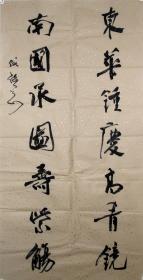 東華鍾慶高青鏡
南國承圖壽紫觴